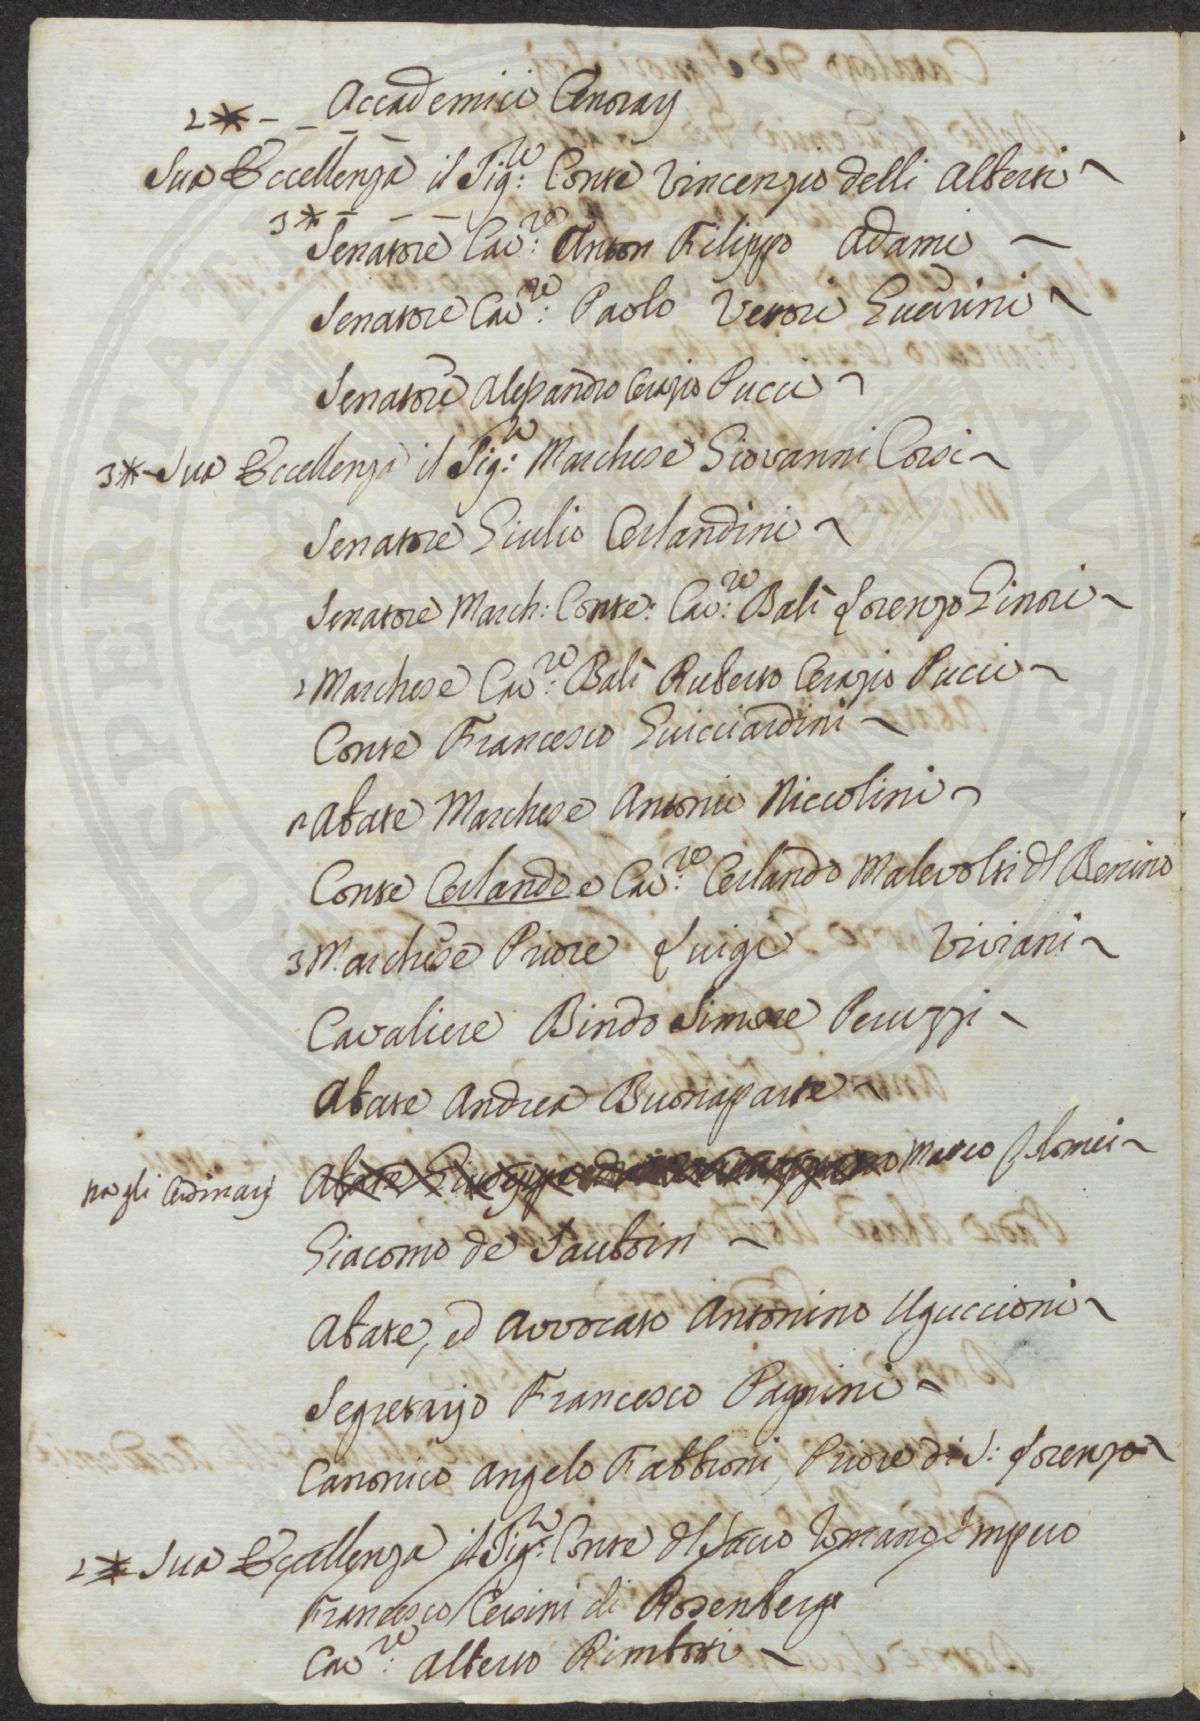 2* - - - Accademici Onorarj
Sua Eccellenza il Sig:re Conte Vincenzio delli Alberti
3* - - -
Senatore Cav:re Anton Filippo Adami
Senatore Cav:re Paolo Vettori Guerini
Senatore Alessandro Orazio Pucci
3* Sua Eccellenza il Sig:re Marchese Giovanni Corsi
Senatore Giulio Orlandini
Senatore March: Conte: Cav:re Balì Lorenzo Ginori
2 Marchese Cav:re Balì Ruberto Orazio Pucci
Conte Francesco Guicciardini
Abate Marchese Antonio Niccolini
Conte Orlando e Cav:re Orlando Malevolti del Benino
3 Marchese Priore Luigi Viviani
Cavaliere Bindo Simone Peruzzi
Abate Andrea Buonaparte
tra gli Ordinarj Abate Giuseppe Marco Lomei
Giacomo de Sauboin
Abate, ed Avvocato Antonino Uguccioni
Segretario Francesco Pagnini
Canonico Angelo Fabbroni, Priore di S: Lorenzo
2* Sua Eccellenza il Sig:re Conte del Sacro Romano Impero
Francesco Orsini di Rosenberg
Cav:re Alberto Rimbotti